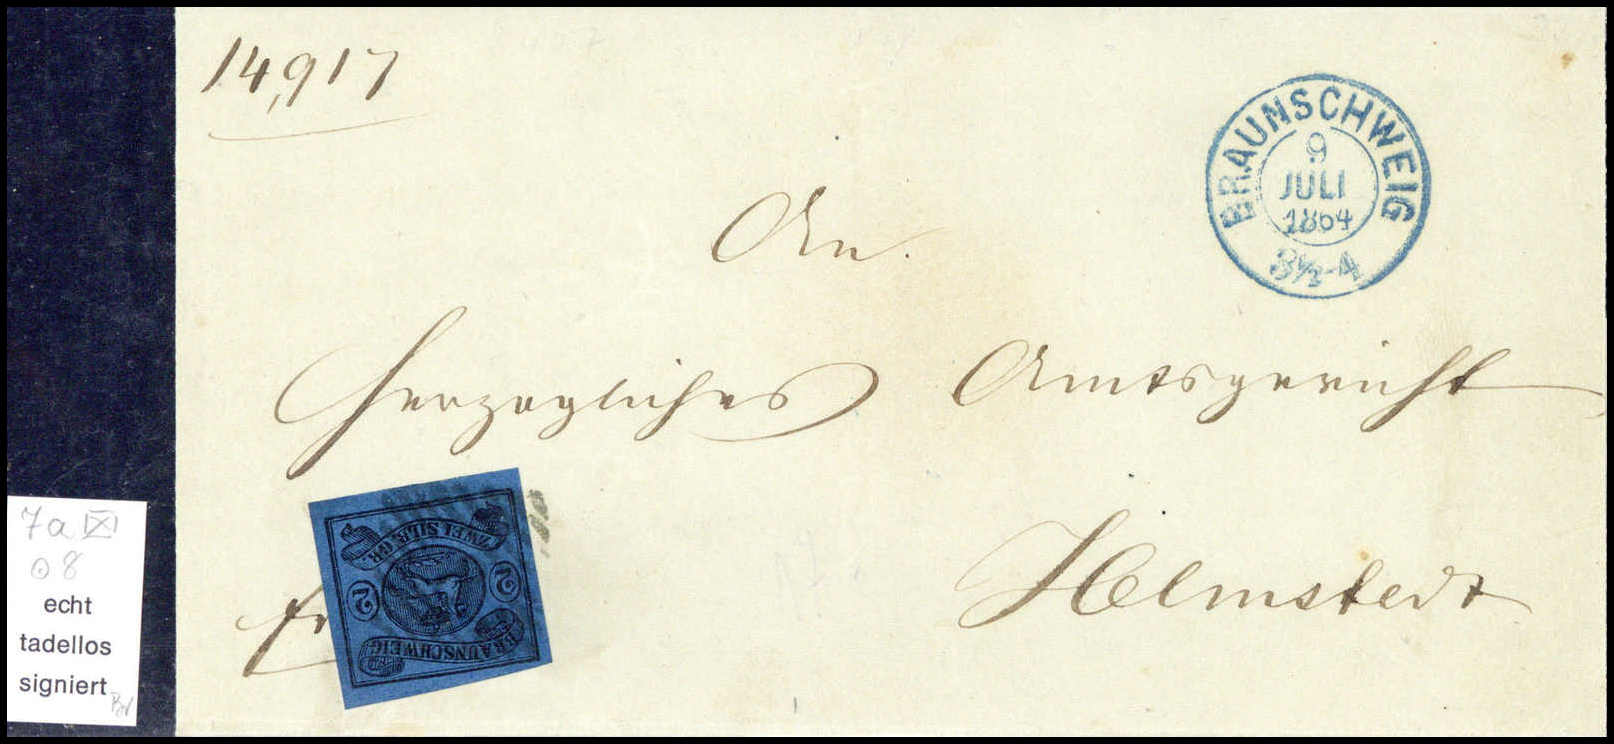 14,917
BRAUNSCHWEIG
9
JULI
1864
3½-4
An
Herzogliches Amtsgericht
Helmstedt
fr
ZWEI SILB. GR.
2 2
BRAUNSCHWEIG
7a IX
⊙ 8
echt
tadellos
signiert